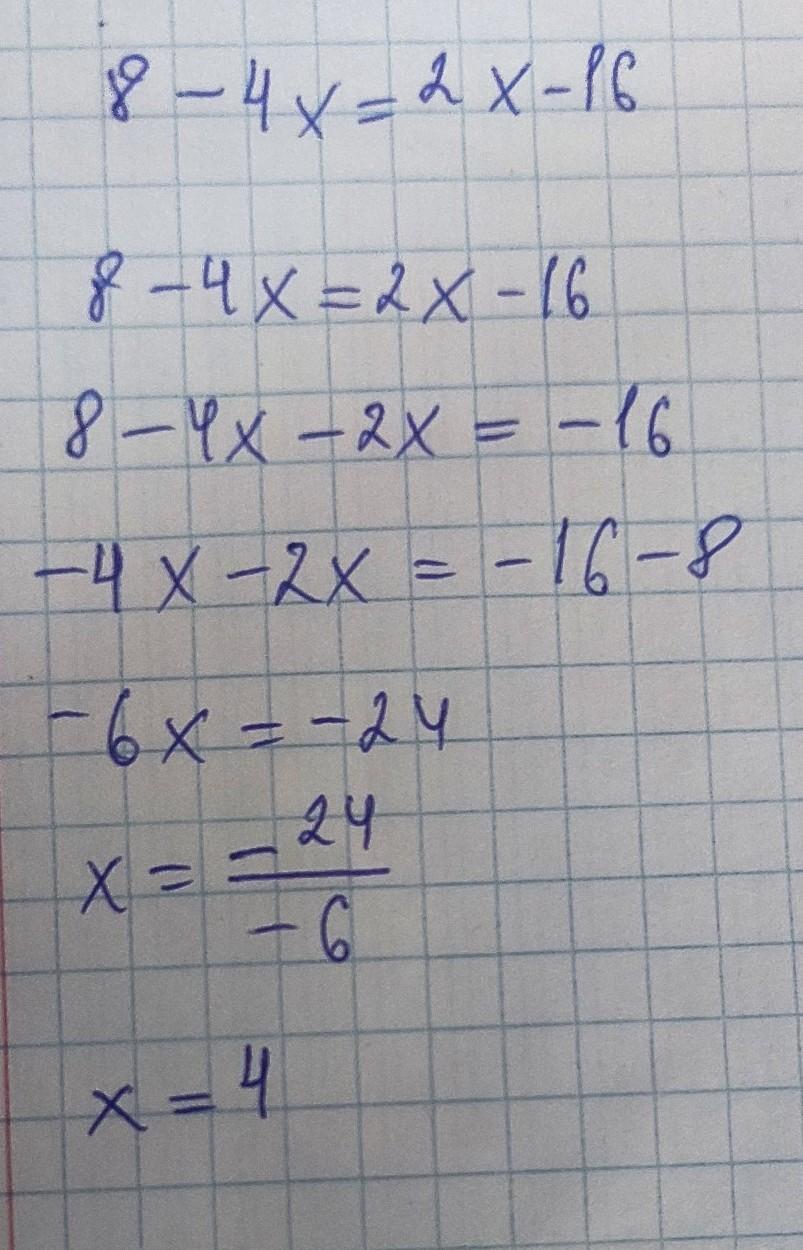 8 - 4x = 2x - 16
8 - 4x = 2x - 16
8 - 4x - 2x = -16
-4x - 2x = -16 - 8
-6x = -24
x = -24/-6
x = 4